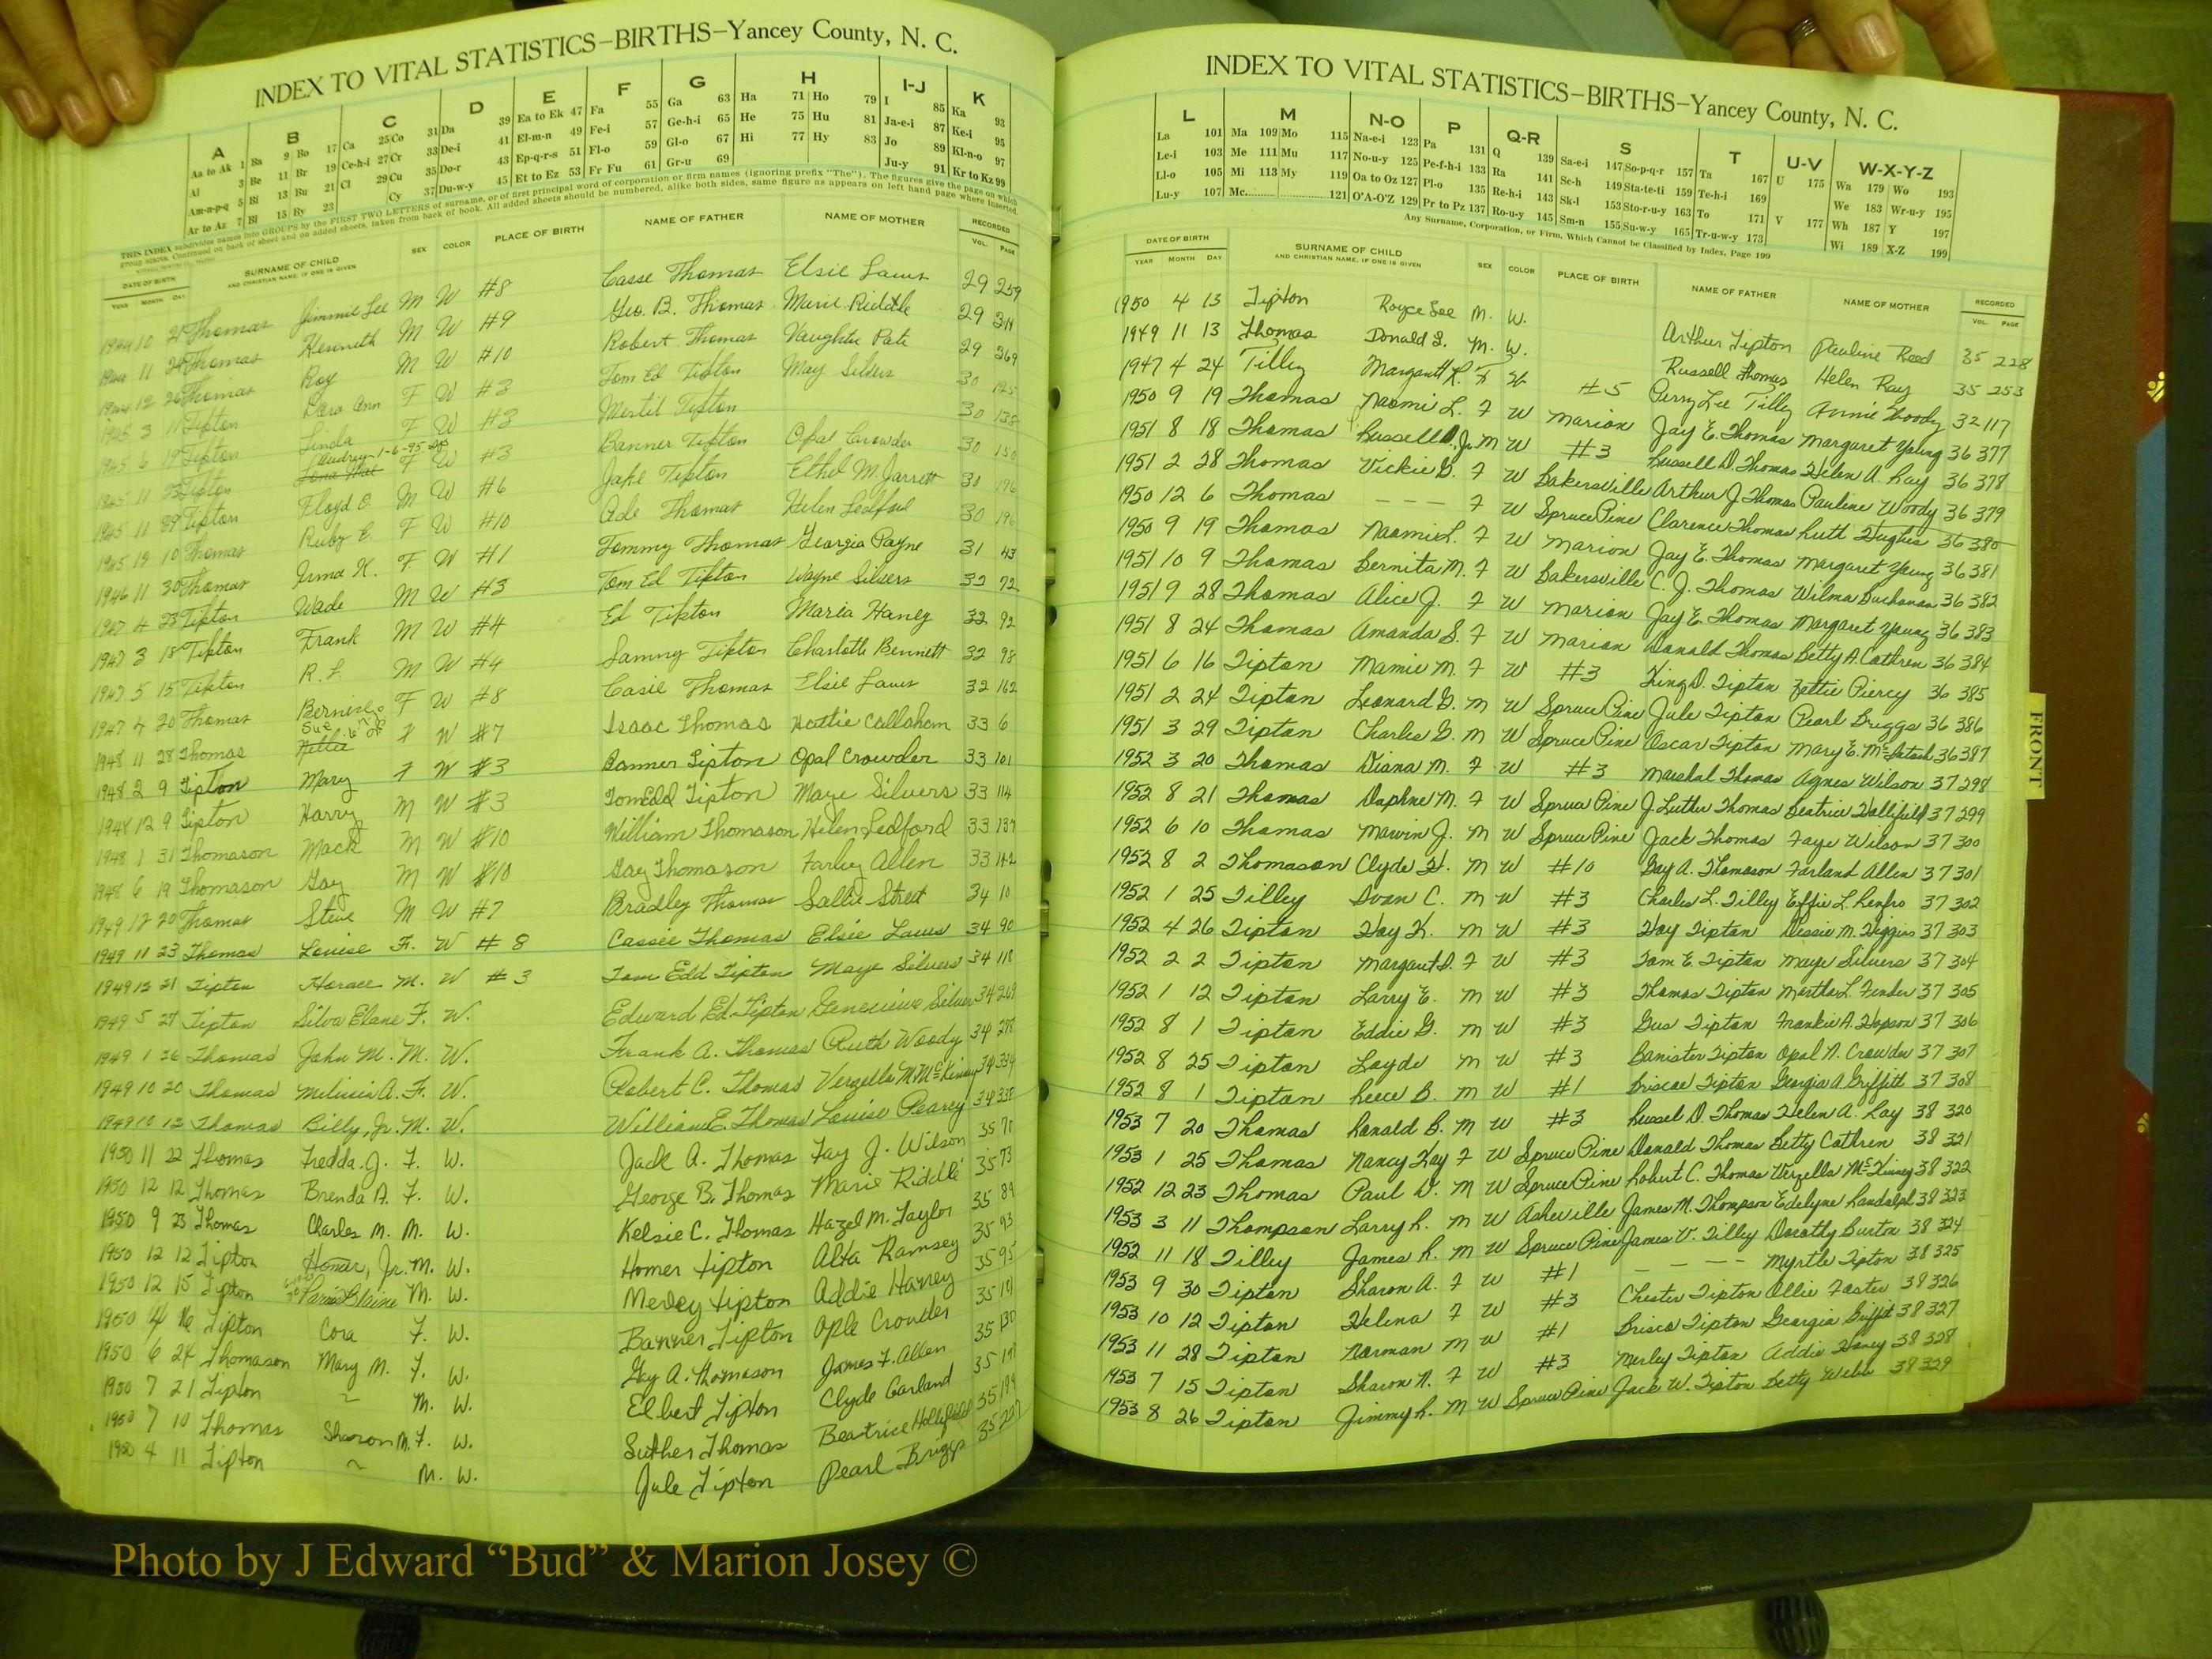 INDEX TO VITAL STATISTICS–BIRTHS–Yancey County, N. C.
A B C D E F G H I-J K
Aa to Ak 1 Ba 9 Bo 17 Ca 25 Co 31 Da 39 Ea to Ek 47 Fa 55 Ga 63 Ha 71 Ho 79 I 85 Ka 93
Al 3 Be 11 Br 19 Ce-h-i 27 Cr 33 De-i 41 El-m-n 49 Fe-i 57 Ge-h-i 65 He 75 Hu 81 Ja-e-i 87 Ke-i 95
Am-n-p-q 5 Bi 13 Bu 21 Cl 29 Cu 35 Do-r 43 Ep-q-r-s 51 Fl-o 59 Gl-o 67 Hi 77 Hy 83 Jo 89 Kl-n-o 97
Ar to Az 7 Bl 15 By 23 Cy 37 Du-w-y 45 Et to Ez 53 Fr Fu 61 Gr-u 69 Ju-y 91 Kr to Kz 99
THIS INDEX subdivides names into GROUPS by the FIRST TWO LETTERS of surname, or of first principal word of corporation or firm names (ignoring prefix "The"). The figures give the page on which
group starts. Continued on back of sheet and on added sheets, taken from back of book. All added sheets should be numbered, alike both sides, same figure as appears on left hand page where inserted.
DATE OF BIRTH SURNAME OF CHILD SEX COLOR PLACE OF BIRTH NAME OF FATHER NAME OF MOTHER RECORDED
YEAR MONTH DAY AND CHRISTIAN NAME, IF ONE IS GIVEN VOL. PAGE
Thomas Jimmie Lee M W #8 Casse Thomas Elsie Laws 29 259
Thomas Kenneth M W #9 Geo. B. Thomas Marie Riddle 29 311
Thomas Roy M W #10 Robert Thomas Naughtie Pate 29 369
1945 3 11 Tipton Dora Ann F W #3 Tom Ed Tipton May Silvers 30 125
1945 6 19 Tipton Linda F W #3 Mertil Tipton 30 138
1945 11 Tipton Audrey 1-6-95 F W #3 Banner Tipton Opal Crowder 30 150
1945 11 29 Tipton Floyd E. M W #6 Jake Tipton Ethel M. Jarrett 30 196
1945 10 Thomas Ruby E. F W #10 Ade Thomas Helen Ledford 30 196
1946 11 30 Thomas Irma K. F W #1 Tommy Thomas Georgia Payne 31 43
1947 4 23 Tipton Wade M W #3 Tom Ed Tipton Wayne Silvers 32 72
1947 3 18 Tipton Frank M W #4 Ed Tipton Maria Haney 32 92
1947 5 15 Tipton R. L. M W #4 Sammy Tipton Charlotte Bennett 32 98
1947 4 20 Thomas Bernice F W #8 Casie Thomas Elsie Laws 32 162
1948 11 28 Thomas Sue Nellie F W #7 Isaac Thomas Hattie Callaham 33 6
1948 2 9 Tipton Mary F W #3 Banner Tipton Opal Crowder 33 101
1948 12 9 Tipton Harry M W #3 Tom Edd Tipton Maye Silvers 33 114
1948 1 31 Thomason Mack M W #10 William Thomason Helen Ledford 33 137
1948 6 19 Thomason Gay M W #10 Gay Thomason Farley Allen 33 142
1949 12 20 Thomas Steve M W #7 Bradley Thomas Sallie Street 34 10
1949 11 23 Thomas Louise F. W #8 Cassie Thomas Elsie Laws 34 90
1949 12 21 Tipton Horace M. W #3 Tom Edd Tipton Maye Silvers 34 118
1949 5 27 Tipton Silva Elane F. W. Edward Ed Tipton Genevieve Silver 34 269
1949 1 26 Thomas John M. M. W. Frank A. Thomas Ruth Woody 34 298
1949 10 20 Thomas Melissia A. F. W. Robert C. Thomas Verzella M. McKinney 34 334
1949 10 12 Thomas Billy, Jr. M. W. William E. Thomas Louise Pearcy 34 338
1950 11 22 Thomas Fredda J. F. W. Jack A. Thomas Fay J. Wilson 35 71
1950 12 12 Thomas Brenda A. F. W. George B. Thomas Marie Riddle 35 73
1950 9 23 Thomas Charles M. M. W. Kelsie C. Thomas Hazel M. Taylor 35 89
1950 12 12 Tipton Homer, Jr. M. W. Homer Tipton Alta Ramsey 35 93
1950 12 15 Tipton Blaine M. W. Merley Tipton Addie Haney 35 95
1950 4 16 Tipton Cora F. W. Banner Tipton Ople Crowder 35 101
1950 6 24 Thomason Mary M. F. W. Gay A. Thomason James F. Allen 35 130
1950 7 21 Tipton ~ M. W. Elbert Tipton Clyde Garland 35 141
1950 7 10 Thomas Sharon M. F. W. Suther Thomas Beatrice Hollifield 35 199
1950 4 11 Tipton ~ M. W. Jule Tipton Pearl Briggs 35 227
INDEX TO VITAL STATISTICS–BIRTHS–Yancey County, N. C.
L M N-O P Q-R S T U-V W-X-Y-Z
La 101 Ma 109 Mo 115 Na-e-i 123 Pa 131 Q 139 Sa-e-i 147 So-p-q-r 157 Ta 167 U 175 Wa 179 Wo 193
Le-i 103 Me 111 Mu 117 No-u-y 125 Pe-f-h-i 133 Ra 141 Sc-h 149 Sta-te-ti 159 Te-h-i 169 We 183 Wr-u-y 195
Ll-o 105 Mi 113 My 119 Oa to Oz 127 Pl-o 135 Re-h-i 143 Sk-l 153 Sto-r-u-y 163 To 171 V 177 Wh 187 Y 197
Lu-y 107 Mc 121 O'A-O'Z 129 Pr to Pz 137 Ro-u-y 145 Sm-n 155 Su-w-y 165 Tr-u-w-y 173 Wi 189 X-Z 199
Any Surname, Corporation, or Firm, Which Cannot be Classified by Index, Page 199
DATE OF BIRTH SURNAME OF CHILD SEX COLOR PLACE OF BIRTH NAME OF FATHER NAME OF MOTHER RECORDED
YEAR MONTH DAY AND CHRISTIAN NAME, IF ONE IS GIVEN VOL. PAGE
1950 4 13 Tipton Royce Lee M. W. Arthur Tipton Pauline Reed 35 228
1949 11 13 Thomas Donald S. M. W. Russell Thomas Helen Ray 35 253
1947 4 24 Tilley Margarett R. F W #5 Perry Lee Tilley Annie Woody 32 117
1950 9 19 Thomas Naomi L. F W Marion Jay E. Thomas Margaret Young 36 377
1951 8 18 Thomas Russell D. Jr. M W #3 Russell D. Thomas Helen A. Ray 36 378
1951 2 28 Thomas Vickie G. F W Bakersville Arthur J. Thomas Pauline Woody 36 379
1950 12 6 Thomas - - - F W Spruce Pine Clarence Thomas Ruth Hughes 36 380
1950 9 19 Thomas Naomi L. F W Marion Jay E. Thomas Margaret Young 36 381
1951 10 9 Thomas Bernita M. F W Bakersville C. J. Thomas Wilma Buchanan 36 382
1951 9 28 Thomas Alice J. F W Marion Jay E. Thomas Margaret Young 36 383
1951 8 24 Thomas Amanda S. F W Marion Donald Thomas Betty A. Cathren 36 384
1951 6 16 Tipton Mamie M. F W #3 King D. Tipton Zettie Piercy 36 385
1951 2 24 Tipton Leonard G. M W Spruce Pine Jule Tipton Pearl Briggs 36 386
1951 3 29 Tipton Charles G. M W Spruce Pine Oscar Tipton Mary E. 36 387
1952 3 20 Thomas Diana M. F W #3 Marshal Thomas Agnes Wilson 37 298
1952 8 21 Thomas Daphne M. F W Spruce Pine J. Luther Thomas Beatrice Hollifield 37 299
1952 6 10 Thomas Marvin J. M W Spruce Pine Jack Thomas Faye Wilson 37 300
1952 8 2 Thomason Clyde H. M W #10 Gay A. Thomason Farland Allen 37 301
1952 1 25 Tilley Dvan C. M W #3 Charles L. Tilley Effie L. Renfro 37 302
1952 4 26 Tipton Hoy K. M W #3 Hoy Tipton Dessie M. Higgins 37 303
1952 2 2 Tipton Margaut D. F W #3 Tom E. Tipton Maye Silvers 37 304
1952 1 12 Tipton Larry E. M W #3 Thomas Tipton Martha L. Fender 37 305
1952 8 1 Tipton Eddie G. M W #3 Gus Tipton Frankie A. Hopson 37 306
1952 8 25 Tipton Loyde M W #3 Banister Tipton Opal N. Crowder 37 307
1952 8 1 Tipton Reece B. M W #1 Briscoe Tipton Georgia A. Griffith 37 308
1953 7 20 Thomas Ronald B. M W #3 Russel D. Thomas Helen A. Ray 38 320
1953 1 25 Thomas Nancy Kay F W Spruce Pine Donald Thomas Betty Cathren 38 321
1952 12 23 Thomas Paul D. M W Spruce Pine Robert C. Thomas Verzella McKinney 38 322
1953 3 11 Thompson Larry R. M W Asheville James M. Thompson Edelyne Randolph 38 323
1952 11 18 Tilley James R. M W Spruce Pine James V. Tilley Dorothy Burton 38 324
1953 9 30 Tipton Sharon A. F W #1 - - - - Myrtle Tipton 38 325
1953 10 12 Tipton Helena F W #3 Chester Tipton Ollie Foster 38 326
1953 11 28 Tipton Norman M W #1 Brisco Tipton Georgia Griffit 38 327
1953 7 15 Tipton Sharon N. F W #3 Merley Tipton Addie Haney 38 328
1953 8 26 Tipton Jimmy R. M W Spruce Pine Jack W. Tipton Betty Webb 38 329
FRONT
Photo by J Edward “Bud” & Marion Josey ©